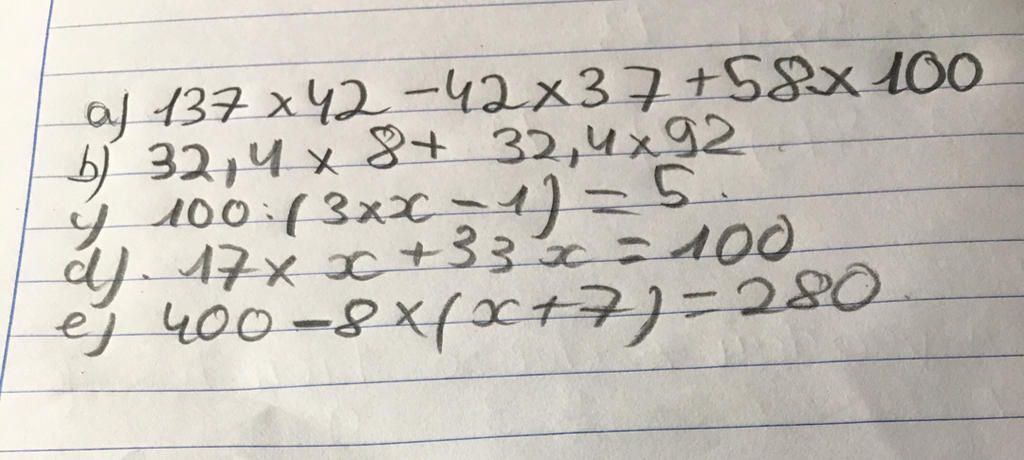 a) 137 x 42 - 42 x 37 + 58 x 100
b) 32,4 x 8 + 32,4 x 92
c) 100 : (3 x x - 1) = 5.
d). 17 x x + 33 x = 100
e) 400 - 8 x (x + 7) = 280.